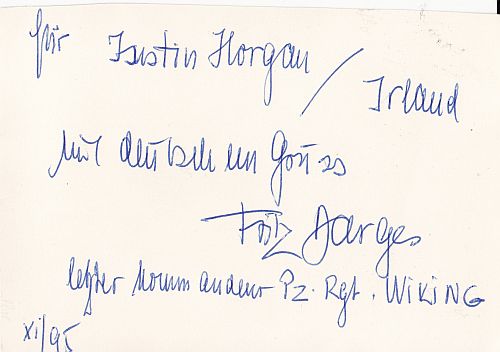 für Justin Horgan / Irland
mit deutschen Gruss
Fritz Darges
letzter Kommandeur Pz. Rgt. WIKING
XI/95